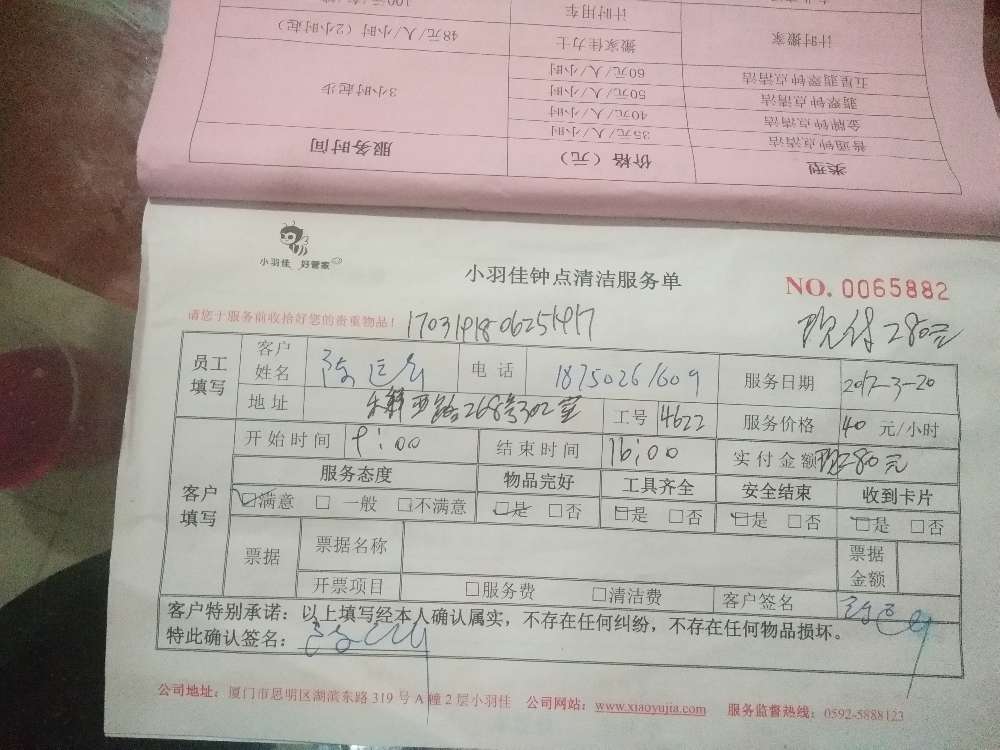 100元/车/
计时用车
计时搬家
48元/人/小时(2小时起)
搬家佳力士
60元/人/小时
五星翡翠钟点清洁
3小时起步
50元/人/小时
翡翠钟点清洁
40元/人/小时
金牌钟点清洁
35元/人/小时
普通钟点清洁
服务时间
价格(元)
类型
小羽佳 好管家
小羽佳钟点清洁服务单
NO. 0065882
请您于服务前收拾好您的贵重物品!
1703191806251917
现付280元
员工填写
客户姓名
电话 18750261609
服务日期 2017-3-20
地址 268号302室
工号 4622
服务价格 40 元/小时
客户填写
开始时间 9:00
结束时间 16:00
实付金额 现280元
服务态度 物品完好 工具齐全 安全结束 收到卡片
□满意 □一般 □不满意 □是 □否 □是 □否 □是 □否 □是 □否
票据
票据名称
票据金额
开票项目 □服务费 □清洁费 客户签名
客户特别承诺:以上填写经本人确认属实,不存在任何纠纷,不存在任何物品损坏。
特此确认签名:
公司地址:厦门市思明区湖滨东路 319 号 A 幢 2 层小羽佳 公司网站:www.xiaoyujia.com 服务监督热线:0592-5888123